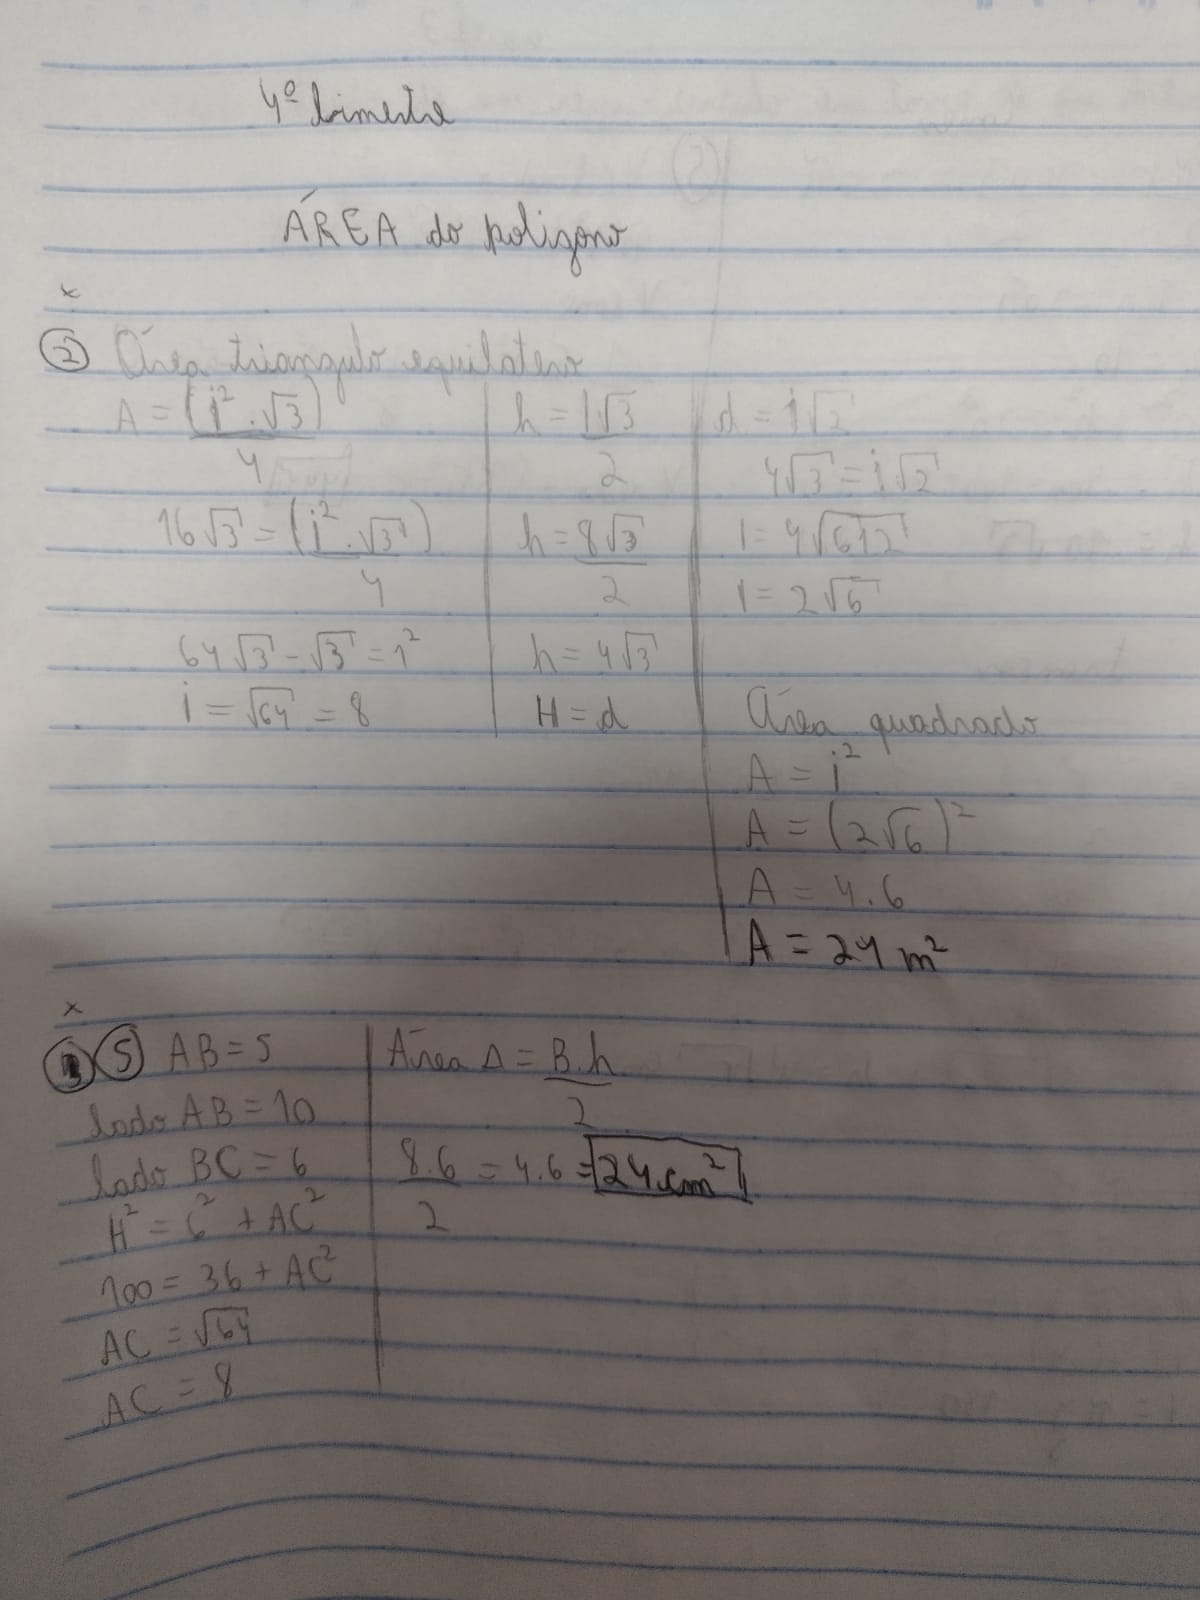 4º bimestre
ÁREA do poligono
x
② Área triangulo equilatero
A = (i² . √3)
4
16√3 = (i² . √3)
4
64√3 - √3 = 1²
i = √64 = 8
h = l√3
2
h = 8√3
2
h = 4√3
H = d
d = i√2
4√3 = i√2
l = 4√612
l = 2√6
Área quadrado
A = i²
A = (2√6)²
A = 4.6
A = 24 m²
x
⑤ AB = 5
lado AB = 10
lado BC = 6
H² = 6² + AC²
100 = 36 + AC²
AC = √64
AC = 8
Área Δ = B.h
2
8.6 = 4.6 = 24 cm²
2